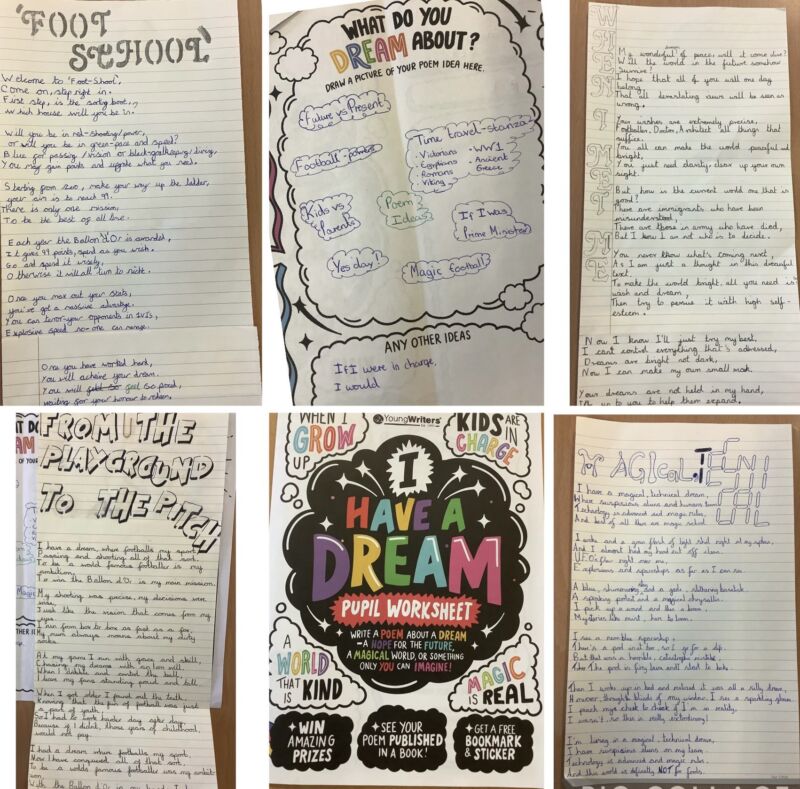 'FOOT
SCHOOL'
Welcome to 'Foot-Shool',
Come on, step right in.
First step, is the sorting boot,
which house will you be in.
Will you be in red-shooting/power,
or will you be in green-pace and speed?
Blue for passing/vision or black-goalkeeping/diving,
You may gain points and upgrade what you need.
Starting from zero, make your way up the ladder,
your aim is to reach 99.
There is only one mission,
To be the best of all time.
Each year the Ballon d'Or is awarded,
It gives 99 points, spend as you wish.
Go and spend it wisely,
Otherwise it will all turn to
Once you max out your stats,
you've got a massive advantage.
You can terror your opponents in 1V1s,
Explosive speed no-one can manage.
Once you have worked hard,
You will acheive your dream.
You will feel so good,
waiting for your honour to
WHAT DO YOU
DREAM ABOUT?
DRAW A PICTURE OF YOUR POEM IDEA HERE.
Future vs Present
Football-powers
Time travel-stanza
• Victorians
• Egyptians
Romans
Viking
• WW1
• Ancient
Greece
Kids vs
Parents
Poem
Ideas
If I was
Prime Minister
Yes day!
Magic football
ANY OTHER IDEAS
If I were in charge,
I would
WHEN I MET ME
My wonderful of peace, will it come true?
Will the world in the future somehow
I hope that all of you will one day
belong,
That all devastating wars will be seen as
wrong.
Your wishes are extremely precise,
Footballer, Doctor, Architect all things that
suffice.
You all can make the world peaceful and
bright,
You just need clarity, clear up your own
sight.
But how is the current world one that is
good?
There are immigrants who have been
misunderstood,
There are those in army who have died,
But I know I am not who is to decide.
You never know what's coming next,
As I am just a thought in this dreamful
text.
To make the world bright, all you need is
wish and dream,
Then try to persue it with high self-
esteem.
Now I know I'll just try my best,
I cant control everything that's addressed,
Dreams are bright not dark,
Now I can make my own small mark.
Your dreams are not held in my hand,
It's up to you to help them expand.
FROM THE
PLAYGROUND
TO THE PITCH
I have a dream, where footballs my sport,
Passing and shooting all of that sort.
To be a world famous footballer is my
ambition,
To win the Ballon d'Or is my main mission.
My shooting was precise, my decisions were
wise,
Just like the vision that comes from my
eyes.
I run from box to box as fast as a fox,
My mum always moans about my dirty
socks.
At my game I run with grace and skill,
Chasing my dreams with an iron will.
When I dribble and control the ball,
I hear my fans standing proud and tall.
When I got older I found out the truth,
Knowing that the fun of football was just
a part of youth.
So I had to work harder day after day,
Because if I didn't, those years of childhood,
would not pay.
I had a dream where footballs my sport,
Now I have conquered all of that sort.
To be a worlds famous footballer was my ambit-
ion,
With the Ballon d'Or in my hand, I
WHEN I
GROW
UP
YoungWriters
KIDS ARE
IN
CHARGE
I
HAVE A
DREAM
PUPIL WORKSHEET
WRITE A POEM ABOUT A DREAM
– A HOPE FOR THE FUTURE,
A MAGICAL WORLD, OR SOMETHING
ONLY YOU CAN IMAGINE!
A
WORLD
THAT IS KIND
MAGIC
IS REAL
WIN
AMAZING
PRIZES
SEE YOUR
POEM PUBLISHED
IN A BOOK!
GET A FREE
BOOKMARK
& STICKER
MAGICAL TECHNICAL
I have a magical, technical dream,
Where suspicious aliens and humans
Technology is advanced and magic rules,
And best of all there are magic
I woke and a green flash of light shot right at my sphere,
And it almost had my hand cut off clean.
U.F.Os flew right over me,
Explosions and spaceships as far as I can see.
A blue, shimmering sky and a gold, slithering
A speaking parrot and a magical chrysallis.
I pick up a wand and
Mysteries like must, have to learn.
I see a horrible spaceship,
There's a pool in it too, so I go for a dip.
But that was a horrible, catastrophic mistake,
The pool is fiery lava and I start to bake.
Then I woke up in bed and realised it was all a silly dream,
However, through the blinds of my window, I see a sparkling gleam.
I pinch my cheek to check if I'm in reality,
I wasn't! so this is really exctrordinary!
I'm living in a magical, technical dream,
I have suspicious aliens on my team.
Technology is advanced and magic rules.
And this world is defically NOT for fools.
PIC COLLAGE